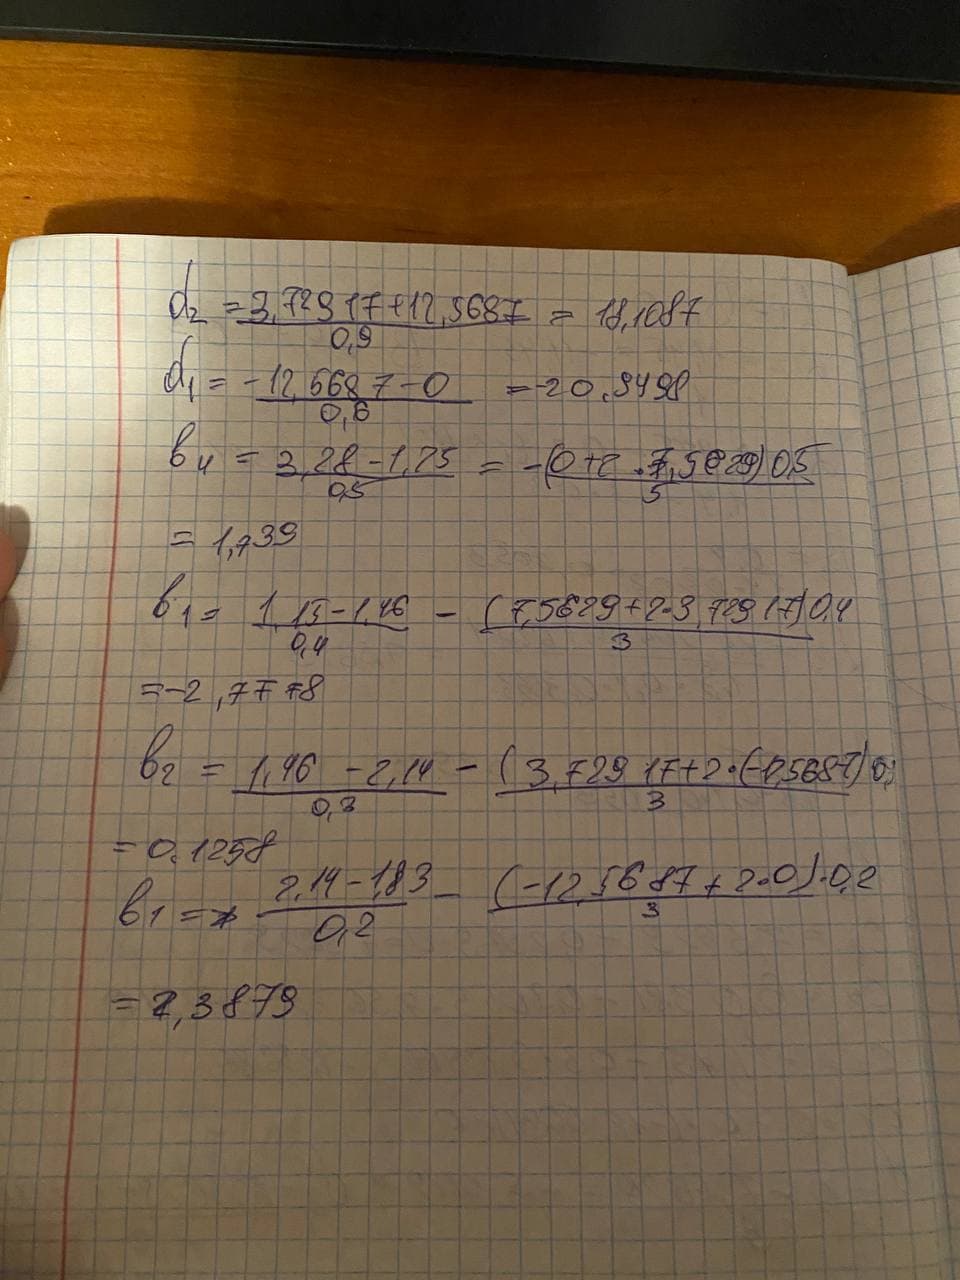 d₂ = 3,72917+12,5687 / 0,9 = 18,1087
d₁ = -12,5687-0 / 0,6 = -20.9498
b₄ = 3,28-1,25 / 0,5 = -(0+2·7,5629)0,5 / 5
= 1,739
b₁ = 1,15-1,46 / 0,4 - (7,5629+2·3,72917)0,4 / 3
= -2,7778
b₂ = 1,46 -2,14 / 0,3 - (3,72917+2·(-12,5687)0,3 / 3
= 0.1258
b₁ = 2,14-1,83 / 0,2 - (-12,5687+2·0)·0,2 / 3
= 2,3879